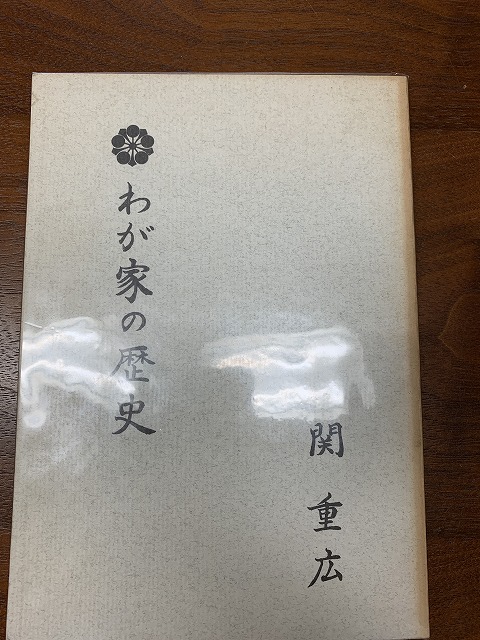 わが家の歴史
関重広